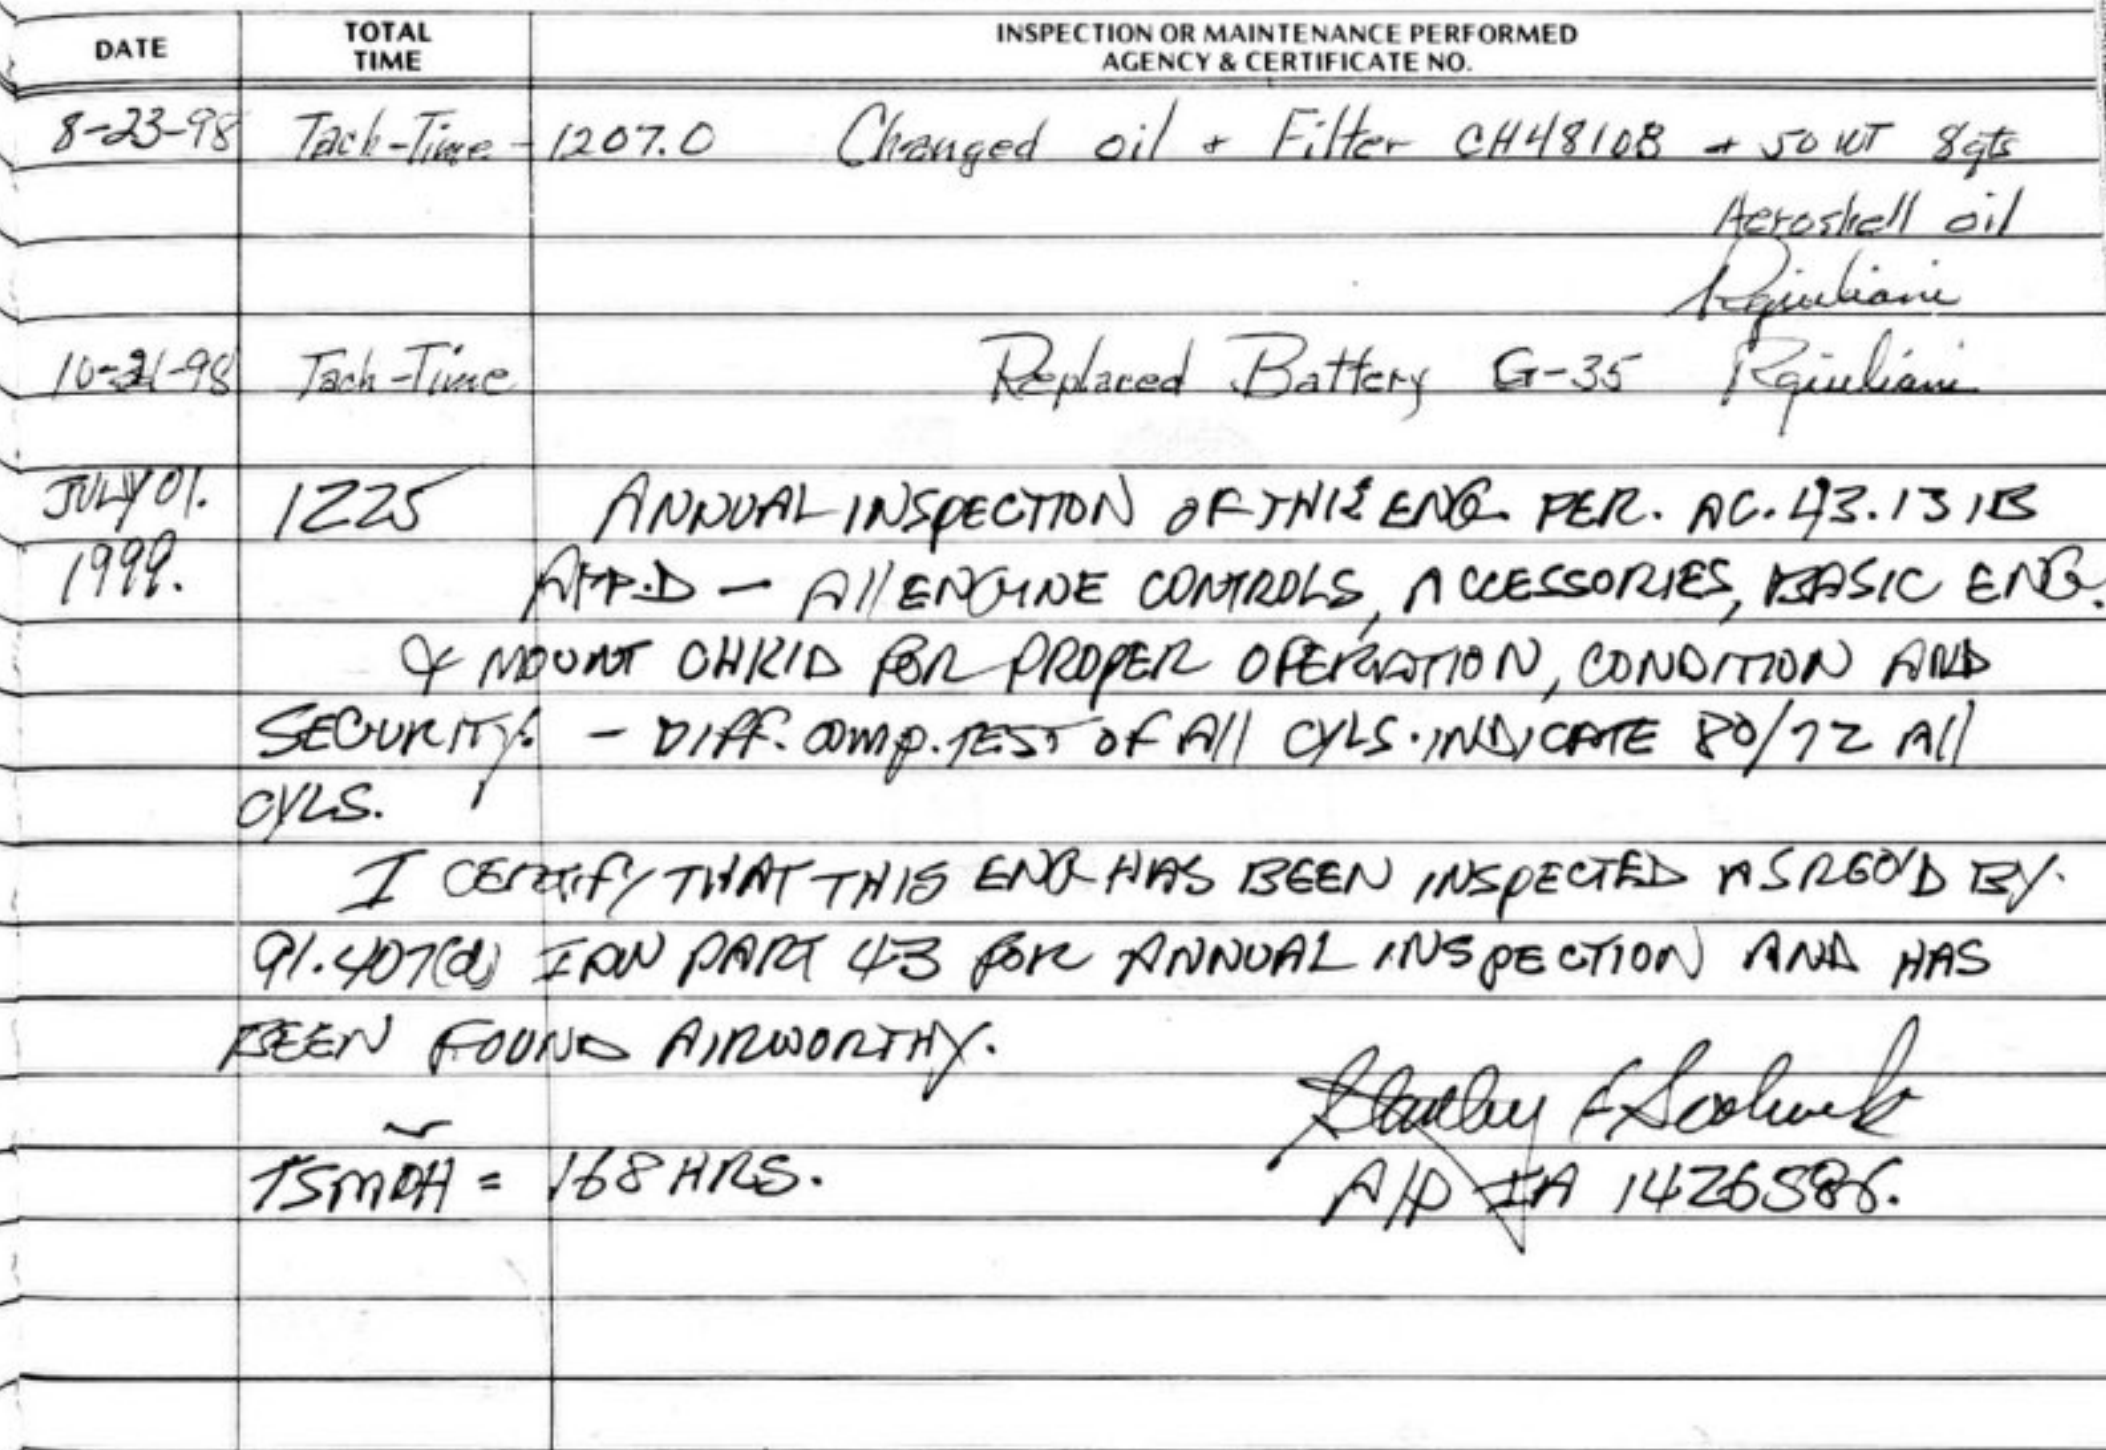 DATE TOTAL TIME INSPECTION OR MAINTENANCE PERFORMED AGENCY & CERTIFICATE NO.
8-23-98 Tach-Time - 1207.0 Changed oil + Filter CH48108 + 50 WT 8qts
Aeroshell oil
RGiuliani
10-21-98 Tach-Time Replaced Battery G-35 RGiuliani
JULY 01. 1225 ANNUAL INSPECTION OF THIS ENG. PER. AC. 43.13 1B
1999. APP.D - All ENGINE CONTROLS, ACCESSORIES, BASIC ENG.
& MOUNT CHK'D FOR PROPER OPERATION, CONDITION AND
SECURITY. - DIFF. COMP. TEST OF All CYLS. INDICATE 80/72 All
CYLS.
I CERTIFY THAT THIS ENG HAS BEEN INSPECTED AS REQ'D BY.
91.407(a) IAW PART 43 FOR ANNUAL INSPECTION AND HAS
BEEN FOUND AIRWORTHY.
Stanley F
TSMOH = 168 HRS. A/P IA 1426586.